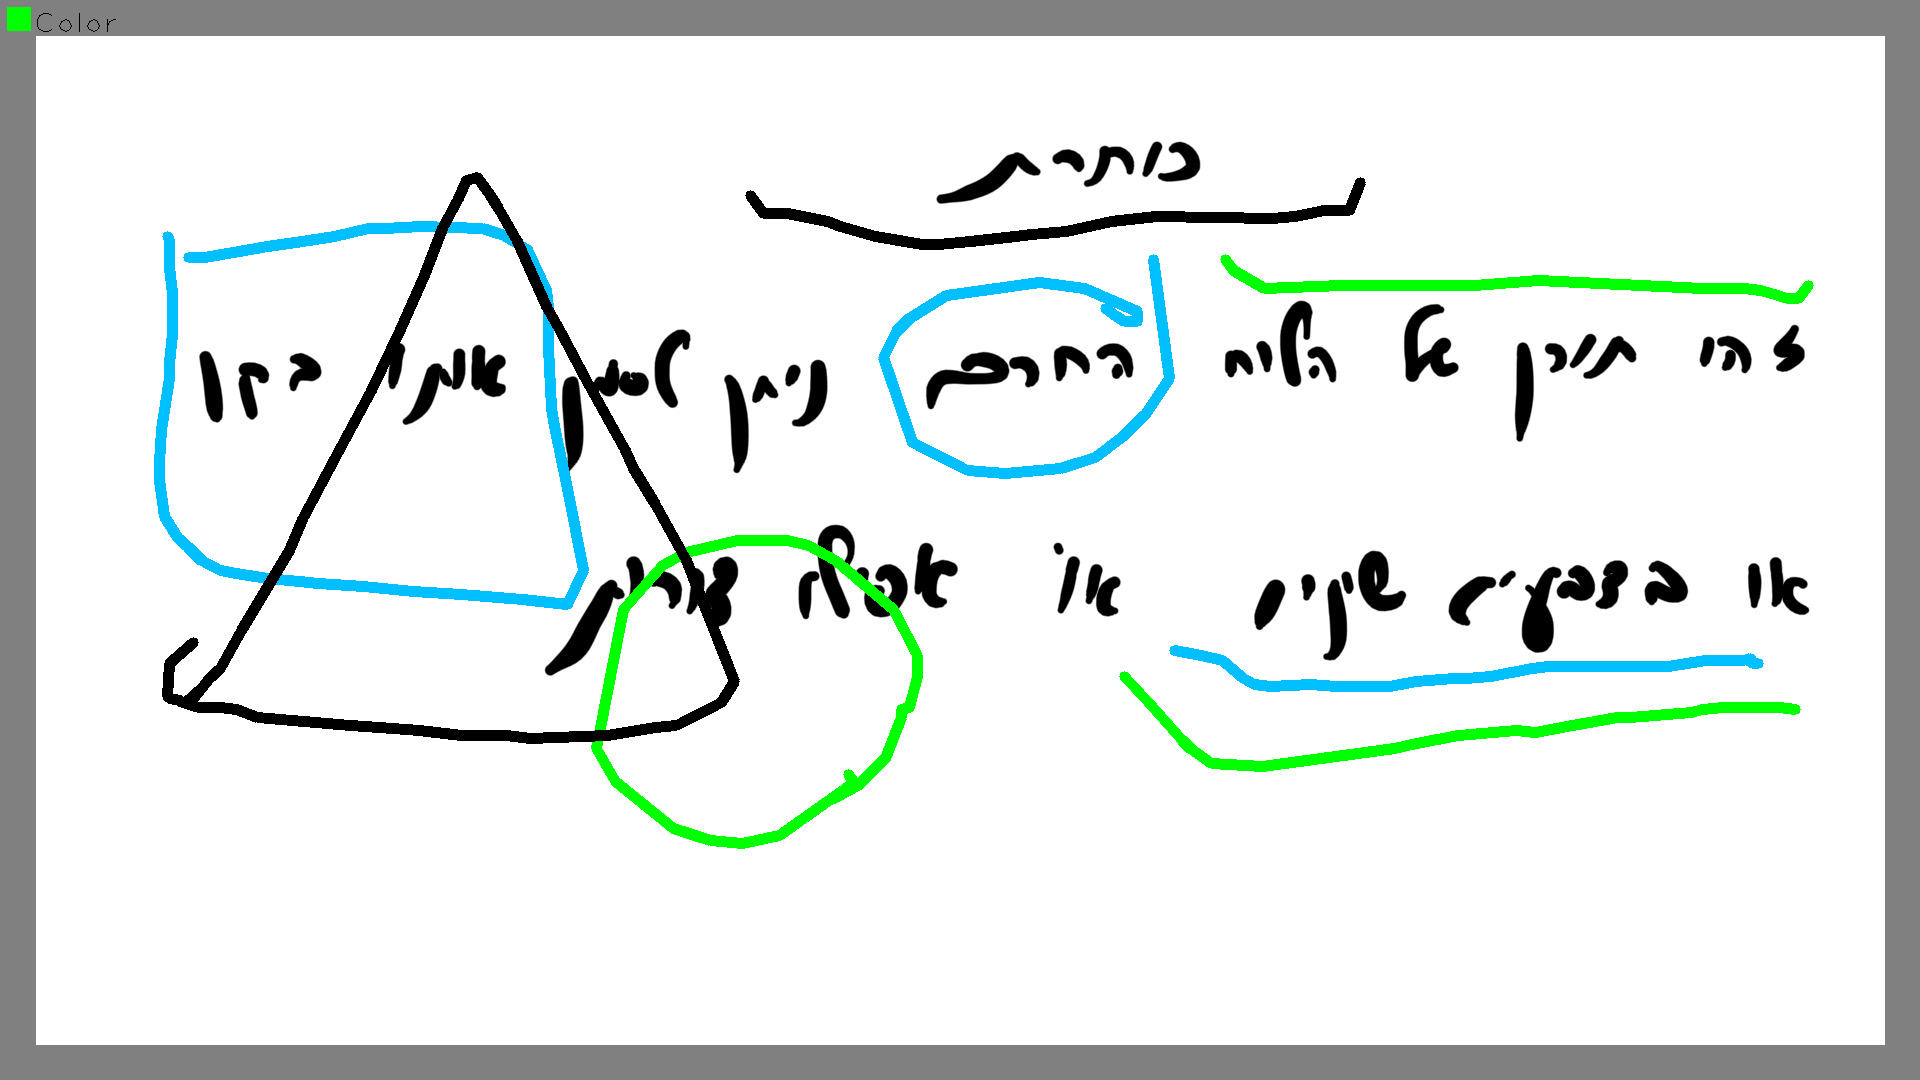 Color
כותרת
זהו תוכן על הלוח החכם ניתן לסמן אותו בקו
או בצבעים שונים או אפילו צורות